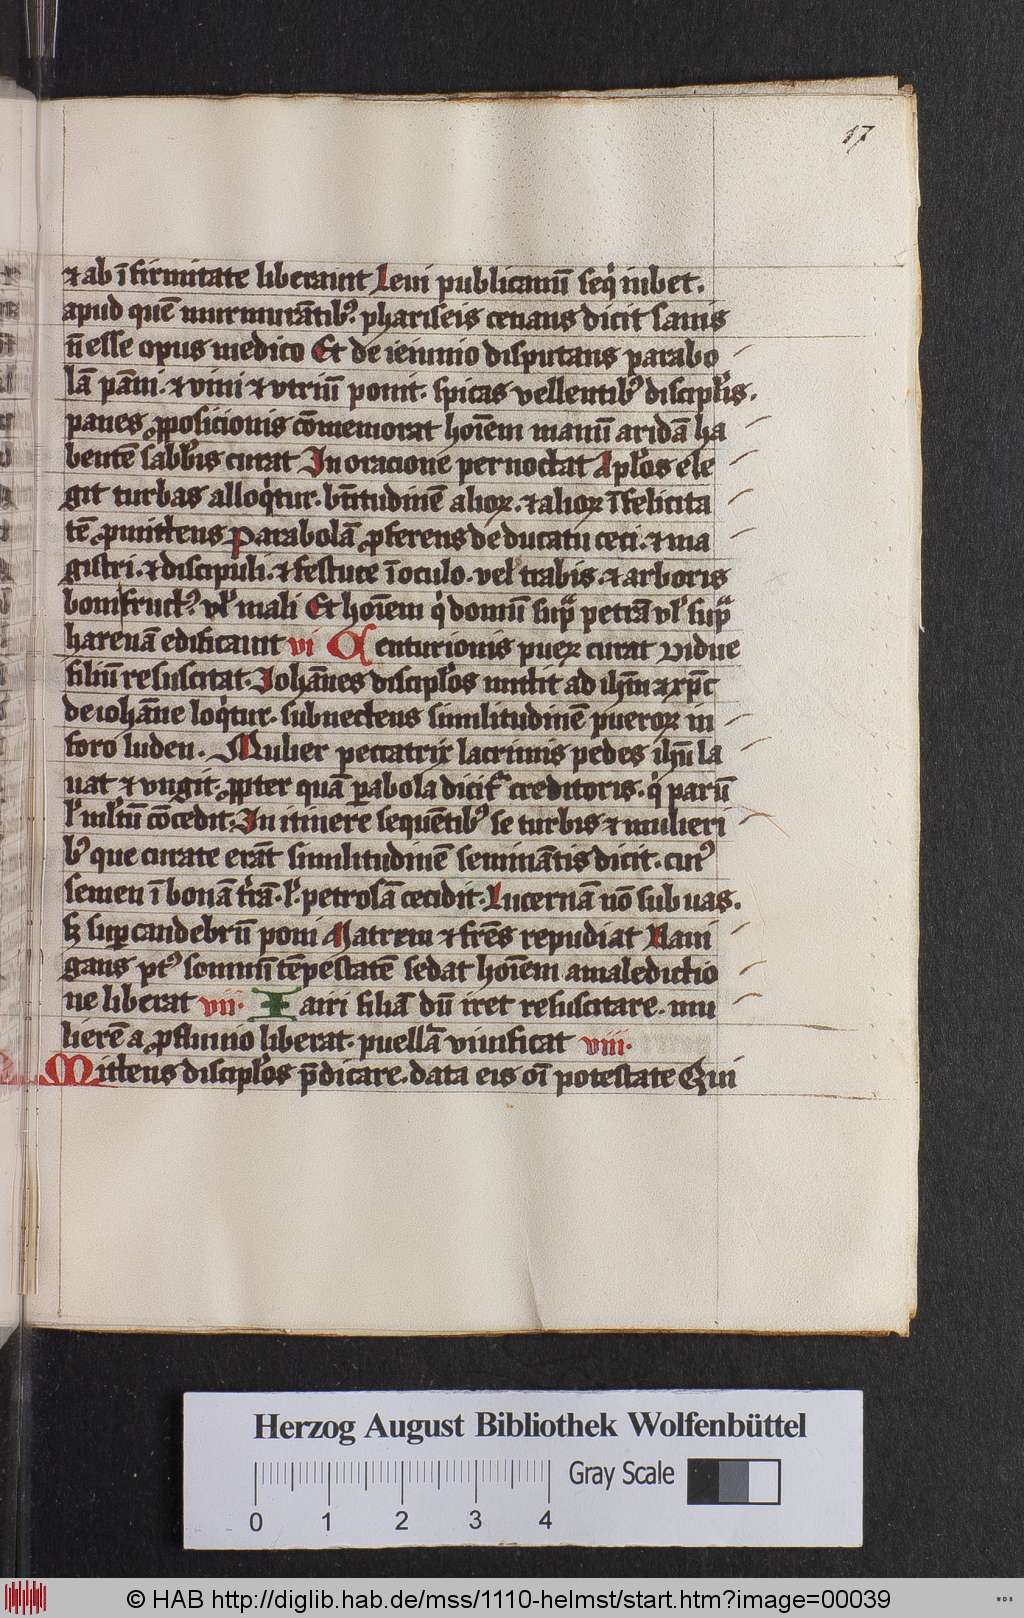 17
⁊ ab īfirmitate liberauit Leui publicanū seqͥ iubet.
apud quē murmurātibꝰ phariseis cenans dicit sanis
n̄ esse opus medico Et de ieiunio disputans parabo
lā pāni. ⁊ vini ⁊ vtriū ponit. spicas vellentibꝰ discipl̓is.
panes ꝓposicionis cōmemorat hoīem manū aridā ha
bentē sabb̓is curat In oracione pernoctat Apl̓os ele
git turbas alloqͥtur. bt̄itudinē alioꝝ. ⁊ alioꝝ īfelicita
tē ꝓmittens Parabolā ꝓferens de ducatu ceci. ⁊ ma
gistri. ⁊ discipuli. ⁊ festuce ī oculo. vel trabis. ⁊ arboris
boni fructꝰ vl̓ mali Et hoīem qͥ domū supͣ petrā vl̓ supͣ
harenā edificauit vi Centurionis pueꝝ curat vidue
filiū resuscitat. Iohānes discipl̓os mittit ad ihm̄ ⁊ xp̄c
de iohāne loqͥtur. subnectens similitudinē pueroꝝ in
foro luden. Mulier peccatrix lacrimis pedes ihū la
uat ⁊ vngit. ꝓpter quā ꝑabola dicitͬ creditoris. qͥ parū
l̓ ml̓tū cōcedit. In itinere sequētibꝰ se turbis ⁊ mulieri
bꝰ que curate erāt similitudinē seminātis dicit. cuiꝰ
semen ī bonā t̓rā. l̓. petrosā cecidit. Lucernā nō sub uas.
sꝫ suꝑ candebrū poni Matrem ⁊ frēs repudiat Naui
gans ptꝰ somnū tēpestatē sedat hoīem a maledictio
ne liberat vii. Iairi filiā dū iret resuscitare. mu
lierē a ꝓfluuio liberat. puellā viuificat viii.
Mittens discipl̓os p̄dicare. data eis oī potestate Qui
Herzog August Bibliothek Wolfenbüttel
0 1 2 3 4 Gray Scale
© HAB http://diglib.hab.de/mss/1110-helmst/start.htm?image=00039